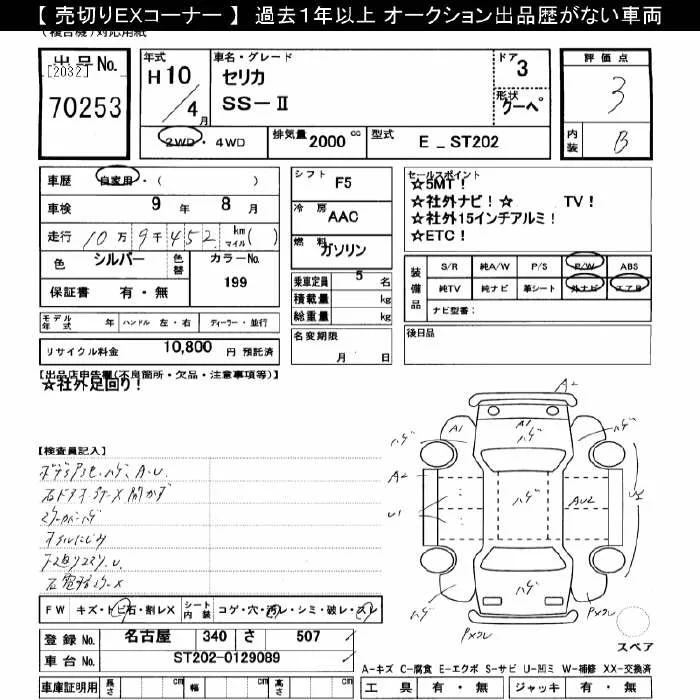 【 売切りEXコーナー 】 過去1年以上 オークション出品歴がない車両
(複合機)対応用紙
出品 No.
[2032]
70253
年式 H10/4月
車名・グレード
セリカ
SS-Ⅱ
ドア 3
形状 クーペ
2WD・4WD
排気量 2000 cc
型式 E_ST202
評価点
3
内装 B
車歴 自家用・( )
車検 9年 8月
走行 10万 9千 452 km マイル ( )
色 シルバー 色替
カラーNo. 199
保証書 有・無
モデル年式 年 ハンドル 左・右 ディーラー・並行
リサイクル料金 10,800 円 預託済
シフト F5
冷房 AAC
燃料 ガソリン
乗車定員 5 名
積載量 kg
総重量 kg
名変期限
月 日
セールスポイント
☆5MT!
☆社外ナビ!☆ TV!
☆社外15インチアルミ!
☆ETC!
装備品
S/R 純A/W P/S P/W ABS
純TV 純ナビ 革シート 外ナビ エアB
ナビ型番:
後日品
【出品店申告欄(不良箇所・欠品・注意事項等)】
☆社外足回り!
【検査員記入】
オイルにじみ
A2
A1 A1 ハゲ
ハゲ
A2
U1 ハゲ AU2 U1
ハゲ
ハゲ
FW キズ・トビ石・割レX シート内装 コゲ・穴・汚レ・シミ・破レ・スリ
登録 No. 名古屋 340 さ 507
車台 No. ST202-0129089
車庫証明用 長さ cm 幅 cm 高さ cm
スペア
A-キズ C-腐食 E-エクボ S-サビ U-凹ミ W-補修 XX-交換済
工具 有・無 ジャッキ 有・無